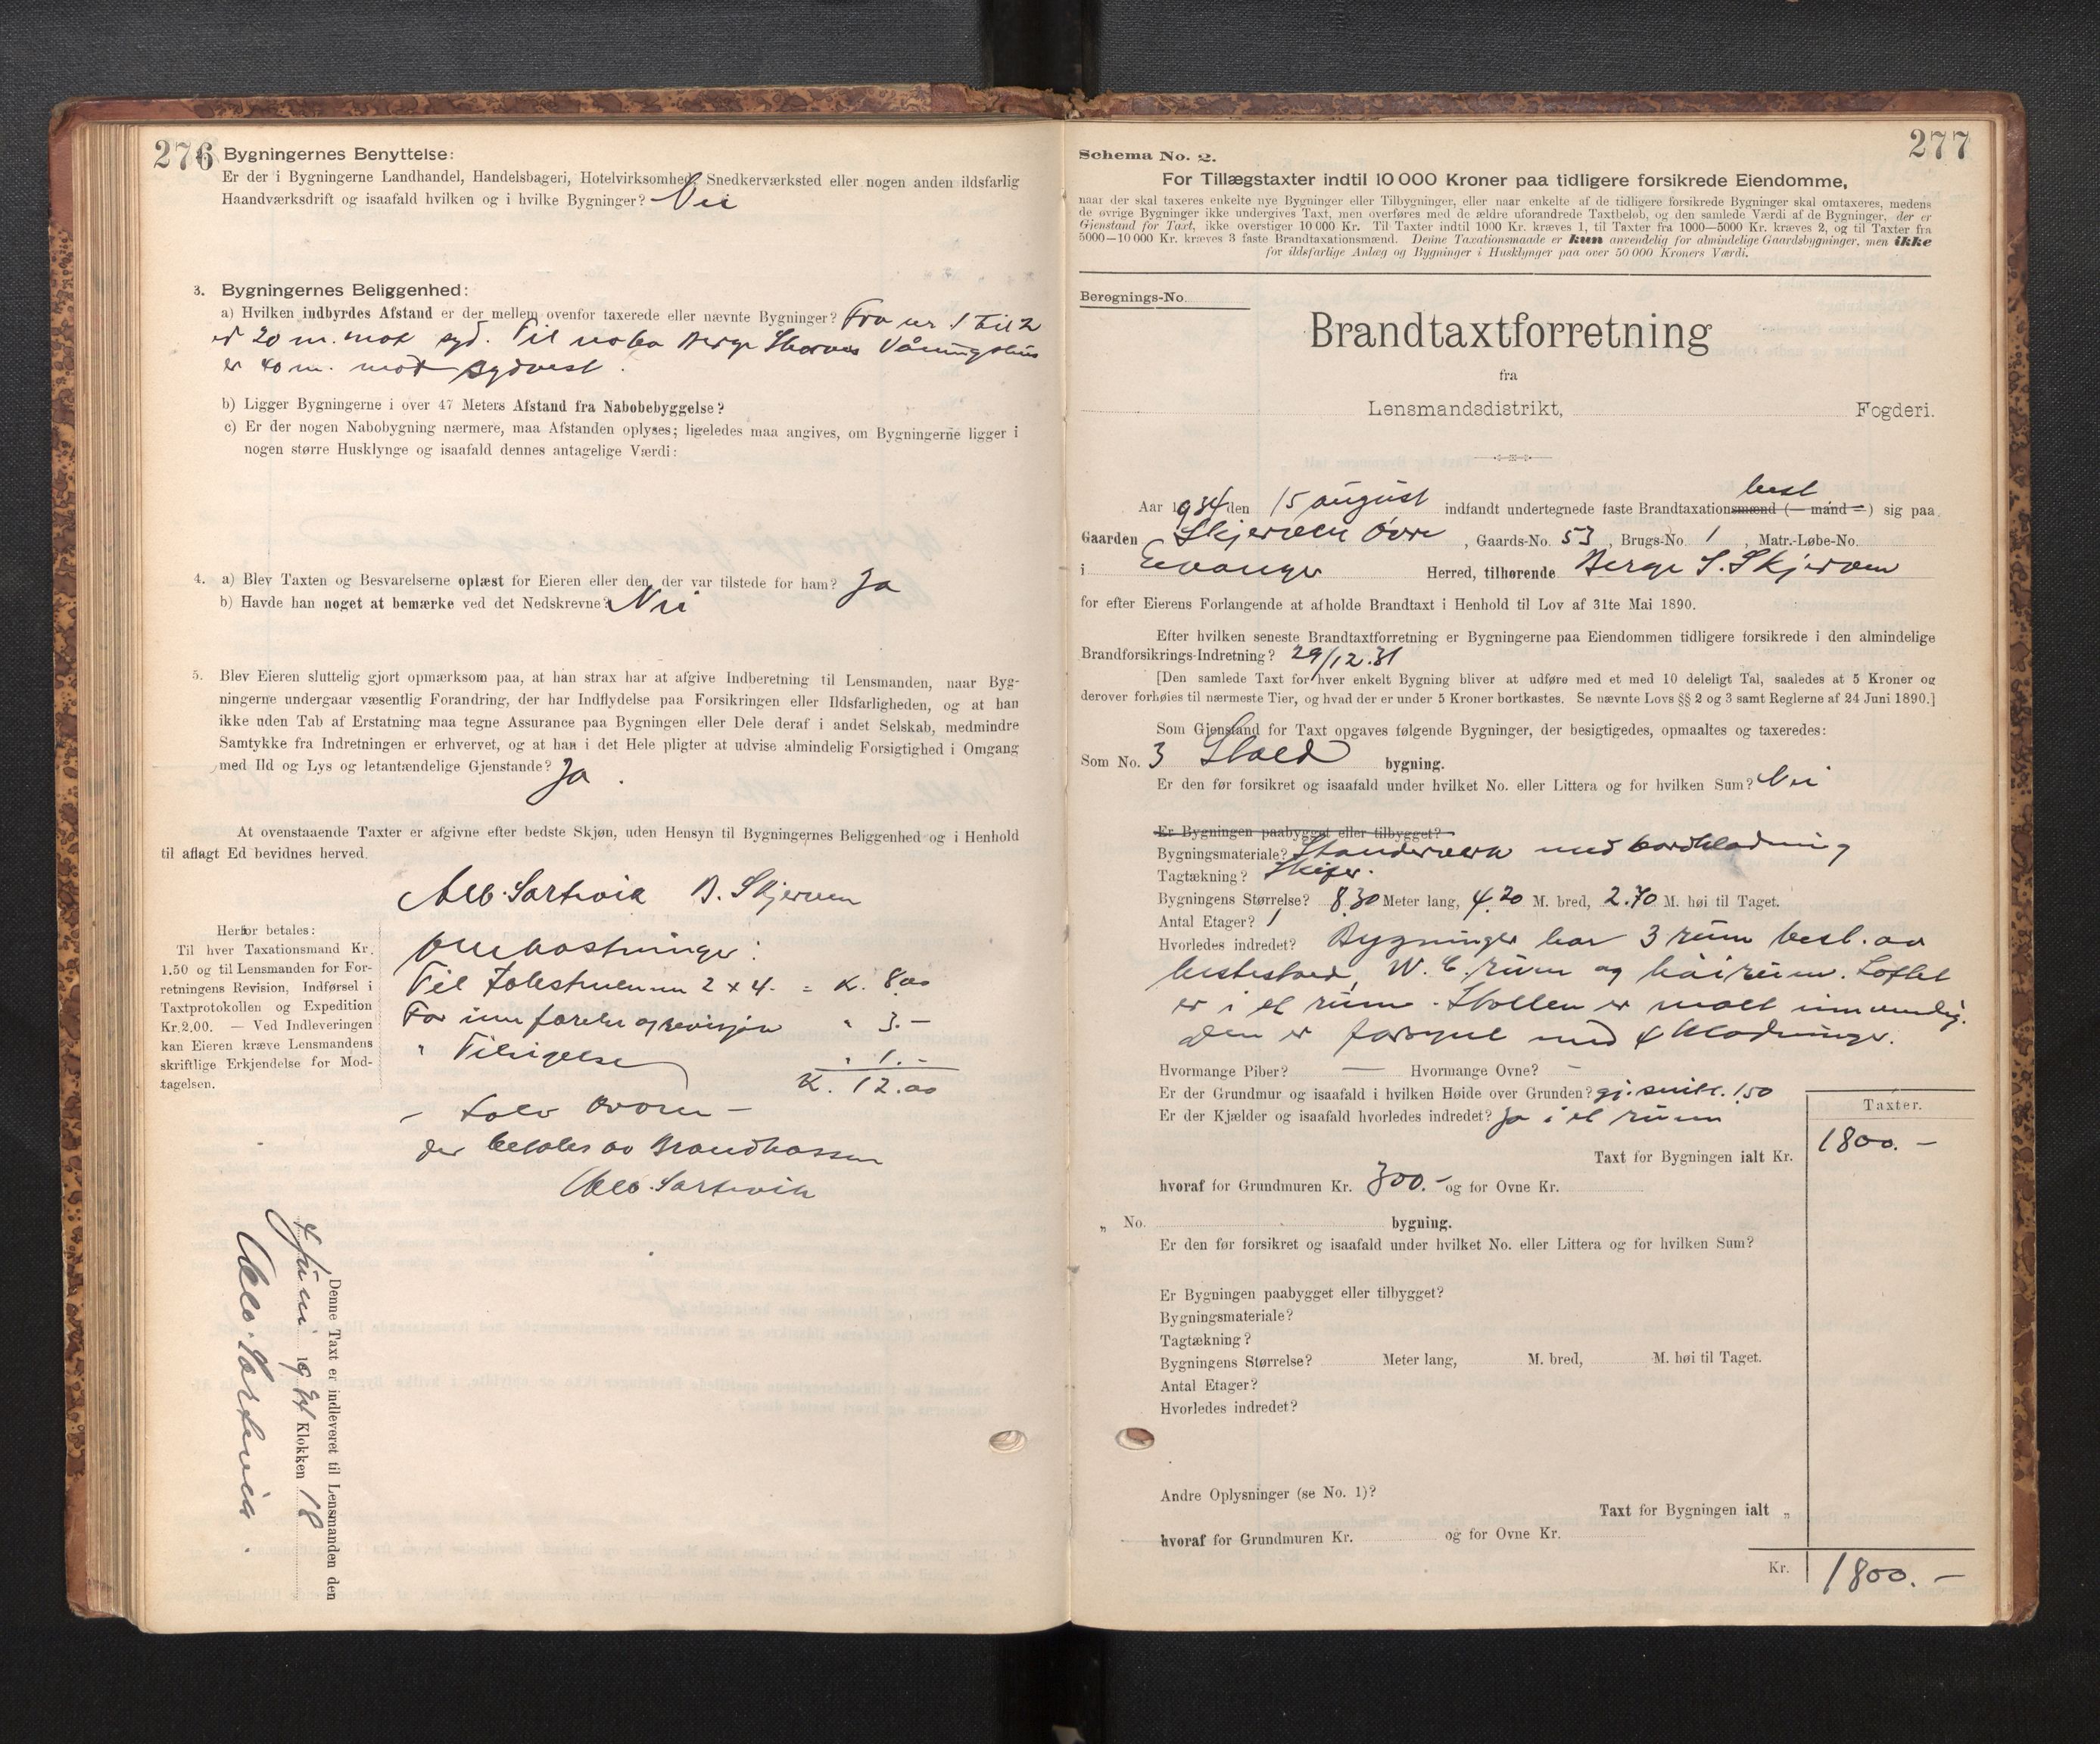 276
Bygningernes Benyttelse:
Er der i Bygningerne Landhandel, Handelsbageri, Hotelvirksomhed, Snedkerværksted eller nogen anden ildsfarlig
Haandværksdrift og isaafald hvilken og i hvilke Bygninger? Nei
3. Bygningernes Beliggenhed:
a) Hvilken indbyrdes Afstand er der mellem ovenfor taxerede eller nævnte Bygninger? Fra nr 1 til 2
er 20 m. mot syd. Til nabo Berge Våningshus
er 40 m. mod sydvest.
b) Ligger Bygningerne i over 47 Meters Afstand fra Nabobebyggelse?
c) Er der nogen Nabobygning nærmere, maa Afstanden oplyses; ligeledes maa angives, om Bygningerne ligger i
nogen større Husklynge og isaafald dennes antagelige Værdi:
4. a) Blev Taxten og Besvarelserne oplæst for Eieren eller den, der var tilstede for ham? Ja
b) Havde han noget at bemærke ved det Nedskrevne? Nei
5. Blev Eieren sluttelig gjort opmærksom paa, at han strax har at afgive Indberetning til Lensmanden, naar Byg-
ningerne undergaar væsentlig Forandring, der har Indflydelse paa Forsikringen eller Ildsfarligheden, og at han
ikke uden Tab af Erstatning maa tegne Assurance paa Bygningen eller Dele deraf i andet Selskab, medmindre
Samtykke fra Indretningen er erhvervet, og at han i det Hele pligter at udvise almindelig Forsigtighed i Omgang
med Ild og Lys og letantændelige Gjenstande? Ja.
At ovenstaaende Taxter er afgivne efter bedste Skjøn, uden Hensyn til Bygningernes Beliggenhed og i Henhold
til aflagt Ed bevidnes herved.
Alb. Sartveit B. Skjerven
Herfor betales:
Til hver Taxationsmand Kr.
1.50 og til Lensmanden for For-
retningens Revision, Indførsel i
Taxtprotokollen og Expedition
Kr. 2.00. — Ved Indleveringen
kan Eieren kræve Lensmandens
skriftlige Erkjendelse for Mod-
tagelsen.
Omkostninger:
Til 2 x 4. = K. 8,00
For innførelse og revisjon " 3.-
" Tilsigelse " 1.-
K. 12.00
- Tolv kroner -
der betales av Brandkassen
Alb. Sartveit
Denne Taxt er indleveret til Lensmanden den
juni 1934 Klokken 18
Alb. Sartveit.
277
Schema No. 2.
For Tillægstaxter indtil 10 000 Kroner paa tidligere forsikrede Eiendomme,
naar der skal taxeres enkelte nye Bygninger eller Tilbygninger, eller naar enkelte af de tidligere forsikrede Bygninger skal omtaxeres, medens
de øvrige Bygninger ikke undergives Taxt, men overføres med de ældre uforandrede Taxtbeløb, og den samlede Værdi af de Bygninger, der er
Gjenstand for Taxt, ikke overstiger 10 000 Kr. Til Taxter indtil 1000 Kr. kræves 1, til Taxter fra 1000—5000 Kr. kræves 2, og til Taxter fra
5000—10 000 Kr. kræves 3 faste Brandtaxationsmænd. Denne Taxationsmaade er kun anvendelig for almindelige Gaardsbygninger, men ikke
for ildsfarlige Anlæg og Bygninger i Husklynger paa over 50 000 Kroners Værdi.
Beregnings-No.
Brandtaxtforretning
fra
Lensmandsdistrikt, Fogderi.
best
Aar 1934 den 15 august indfandt undertegnede faste Brandtaxationsmænd (— mand —) sig paa
Gaarden Skjerven øvre, Gaards-No. 53, Brugs-No. 1, Matr.-Løbe-No.
i Evanger Herred, tilhørende Berge S. Skjerven
for efter Eierens Forlangende at afholde Brandtaxt i Henhold til Lov af 31te Mai 1890.
Efter hvilken seneste Brandtaxtforretning er Bygningerne paa Eiendommen tidligere forsikrede i den almindelige
Brandforsikrings-Indretning? 29/12.31
[Den samlede Taxt for hver enkelt Bygning bliver at udføre med et med 10 deleligt Tal, saaledes at 5 Kroner og
derover forhøies til nærmeste Tier, og hvad der er under 5 Kroner bortkastes. Se nævnte Lovs §§ 2 og 3 samt Reglerne af 24 Juni 1890.]
Som Gjenstand for Taxt opgaves følgende Bygninger, der besigtigedes, opmaaltes og taxeredes:
Som No. 3 Stald bygning.
Er den før forsikret og isaafald under hvilket No. eller Littera og for hvilken Sum? Nei
Er Bygningen paabygget eller tilbygget?
Bygningsmateriale? Standerverk med bordkledning
Tagtækning? Skifer.
Bygningens Størrelse? 8,30 Meter lang, 4,20 M. bred, 2.70 M. høi til Taget.
Antal Etager? 1
Hvorledes indredet? Bygningen har 3 rum best. av
hestestald, W.C. rum og høirum. Loftet
er i et rum. Stallen er malt innvendig.
Den er forsynt med 4 kledninger.
Hvormange Piber? — Hvormange Ovne? -
Er der Grundmur og isaafald i hvilken Høide over Grunden? gj.snitt. 1,50
Er der Kjælder og isaafald hvorledes indredet? Ja i et rum
Taxter.
Taxt for Bygningen ialt Kr. 1800.-
hvoraf for Grundmuren Kr. 300.- og for Ovne Kr.
" No. bygning.
Er den før forsikret og isaafald under hvilket No. eller Littera og for hvilken Sum?
Er Bygningen paabygget eller tilbygget?
Bygningsmateriale?
Tagtækning?
Bygningens Størrelse? Meter lang, M. bred, M. høi til Taget.
Antal Etager?
Hvorledes indredet?
Andre Oplysninger (se No. 1)?
Taxt for Bygningen ialt "
hvoraf for Grundmuren Kr. og for Ovne Kr.
Kr. 1800.-